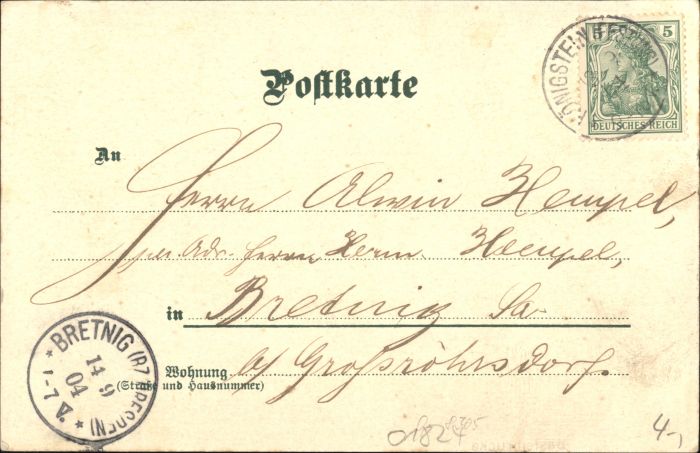 KÖNIGSTEIN (FESTUNG)
5 5
DEUTSCHES REICH
Postkarte
An
Herrn Alwin Hempel,
per Adr. Herrn Herm. Hempel,
in Bretnig Sa.
Wohnung a/ Großröhrsdorf.
(Straße und Hausnummer)
* BRETNIG (BZ. DRESDEN) *
14 9
04
7-8 V.
4.-